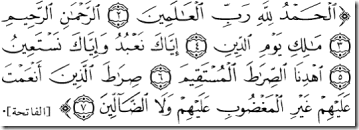 ﴿ٱلۡحَمۡدُ لِلَّهِ رَبِّ ٱلۡعَٰلَمِينَ ٢ ٱلرَّحۡمَٰنِ ٱلرَّحِيمِ
٣ مَٰلِكِ يَوۡمِ ٱلدِّينِ ٤ إِيَّاكَ نَعۡبُدُ وَإِيَّاكَ نَسۡتَعِينُ
٥ ٱهۡدِنَا ٱلصِّرَٰطَ ٱلۡمُسۡتَقِيمَ ٦ صِرَٰطَ ٱلَّذِينَ أَنۡعَمۡتَ
عَلَيۡهِمۡ غَيۡرِ ٱلۡمَغۡضُوبِ عَلَيۡهِمۡ وَلَا ٱلضَّآلِّينَ ٧﴾ [الفاتحة].